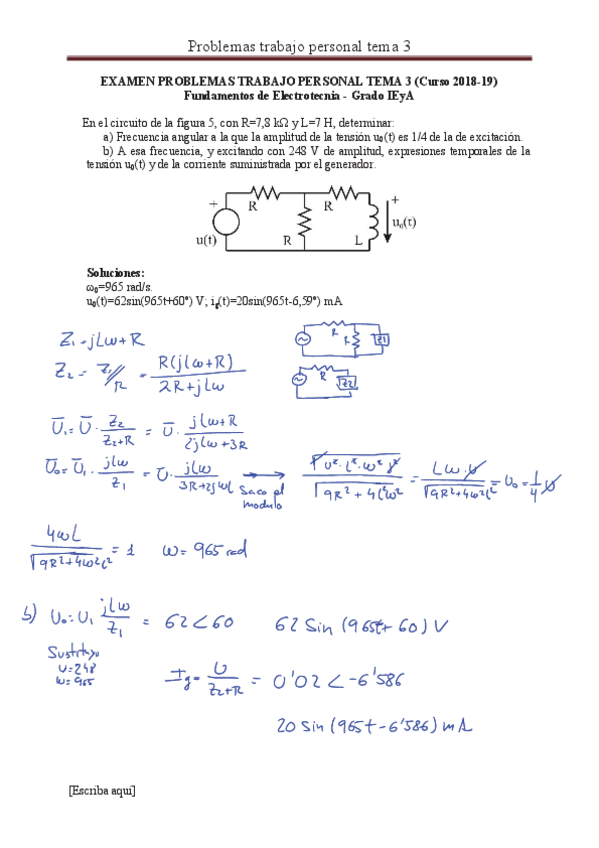 Problemas trabajo personal tema 3
EXAMEN PROBLEMAS TRABAJO PERSONAL TEMA 3 (Curso 2018-19)
Fundamentos de Electrotecnia - Grado IEyA
En el circuito de la figura 5, con R=7,8 kΩ y L=7 H, determinar:
a) Frecuencia angular a la que la amplitud de la tensión u₀(t) es 1/4 de la de excitación.
b) A esa frecuencia, y excitando con 248 V de amplitud, expresiones temporales de la
tensión u₀(t) y de la corriente suministrada por el generador.
+ R R +
u₀(t)
u(t) R L
Soluciones:
ω₀=965 rad/s.
u₀(t)=62sin(965t+60°) V; i_g(t)=20sin(965t-6,59°) mA
Z₁=jLω+R
R R Z1
Z₂ = Z₁//R = R(jLω+R) / 2R+jLω
R Z2
U̅₁= U̅ · Z₂/(Z₂+R) = U̅ · (jLω+R)/(2jLω+3R)
U̅₀= U̅₁ · jLω/Z₁ = U̅ · jLω/(3R+2jωL) Saco el modulo √(U²·L²·ω²)/√(9R²+4L²ω²) = Lω·U/√(9R²+4ω²L²) = U₀ = 1/4 U
4ωL/√(9R²+4ω²L²) = 1 ω= 965 rad
b) U₀=U₁ jLω/Z₁ = 62∠60 62 Sin (965t+60) V
Sustituyo
U=248
ω=965
Ig= U/(Z₂+R) = 0'02 ∠-6'586
20 sin (965t-6'586) mA
[Escriba aquí]